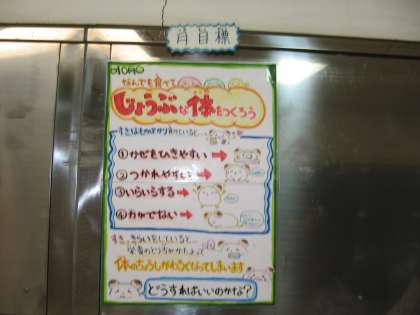 月目標
なんでも食べて
じょうぶな体をつくろう
①かぜをひきやすい
②つかれやすい
③いらいらする
④力がでない
すききらいをしていると…
栄養のかたよって
体のちょうしがわるくなってしまいます
どうすればいいのかな？